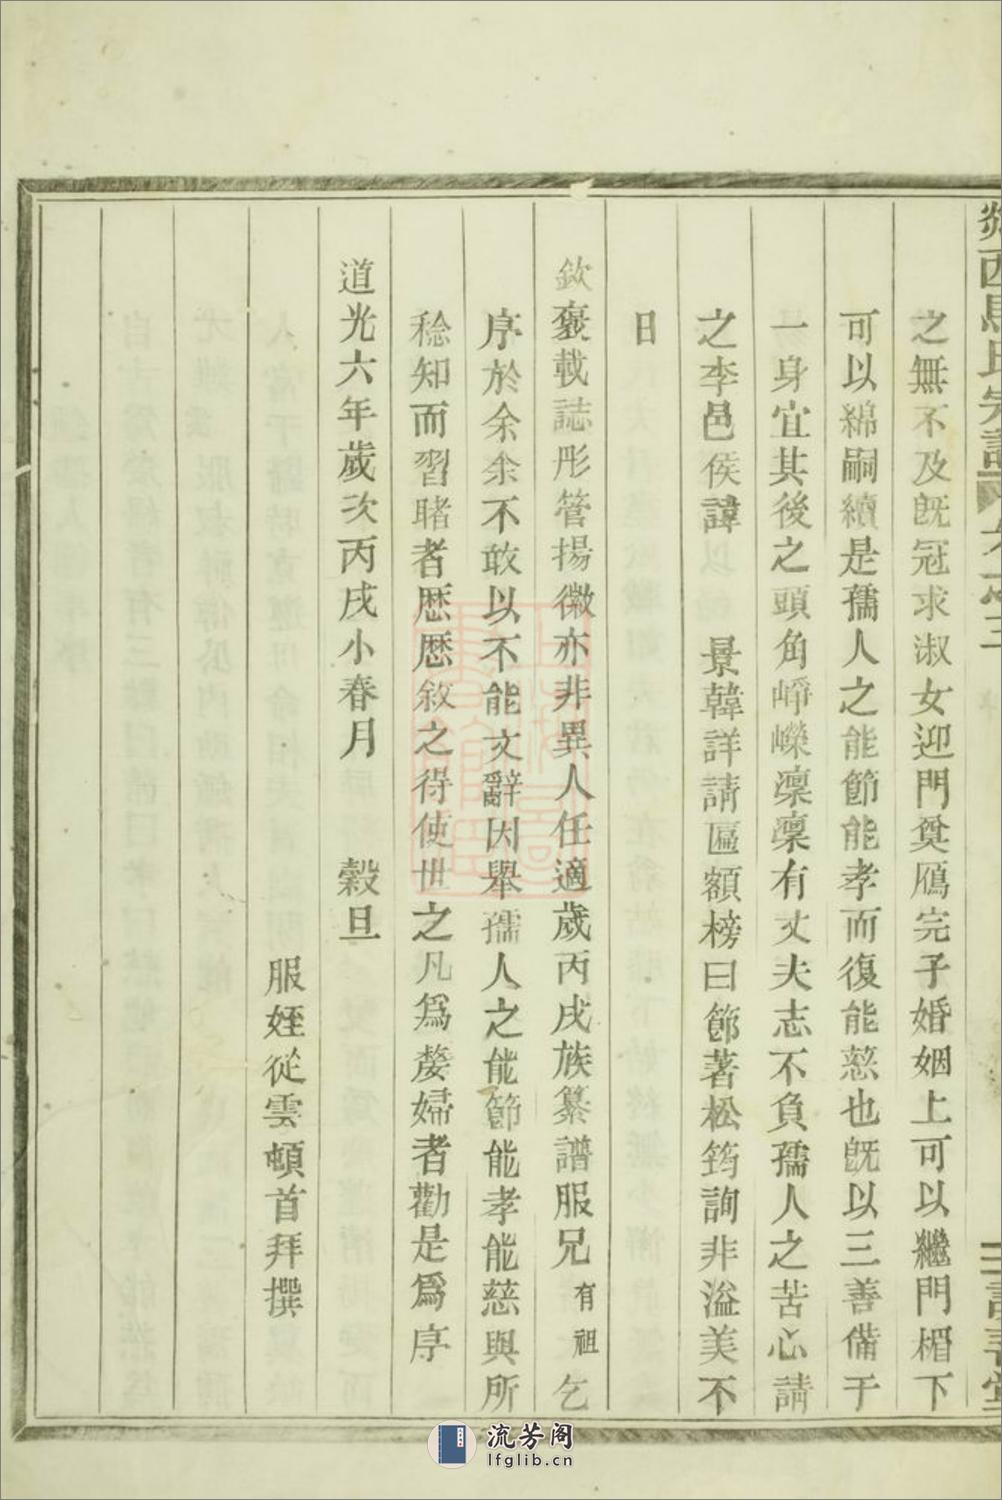 之無不及既冠求淑女迎門奠鴈完子婚姻上可以繼門楣下
可以綿嗣續是孺人之能節能孝而復能慈也旣以三善備于
一身宜其後之頭角崢嶸凛凛有丈夫志不負孺人之苦心請
之李邑侯諱 景韓詳請匾額榜曰節著松筠詢非溢美不
日
欽褒載誌彤管揚徽亦非異人任適歲丙戌族纂譜服兄有祖乞
序於余余不敢以不能文辭因舉孺人之能節能孝能慈與所
稔知而習睹者歷歷敘之得使世之凡爲嫠婦者勸是爲序
道光六年歲次丙戌小春月 穀旦
服姪從雲頓首拜撰
流芳阁
lfglib.cn